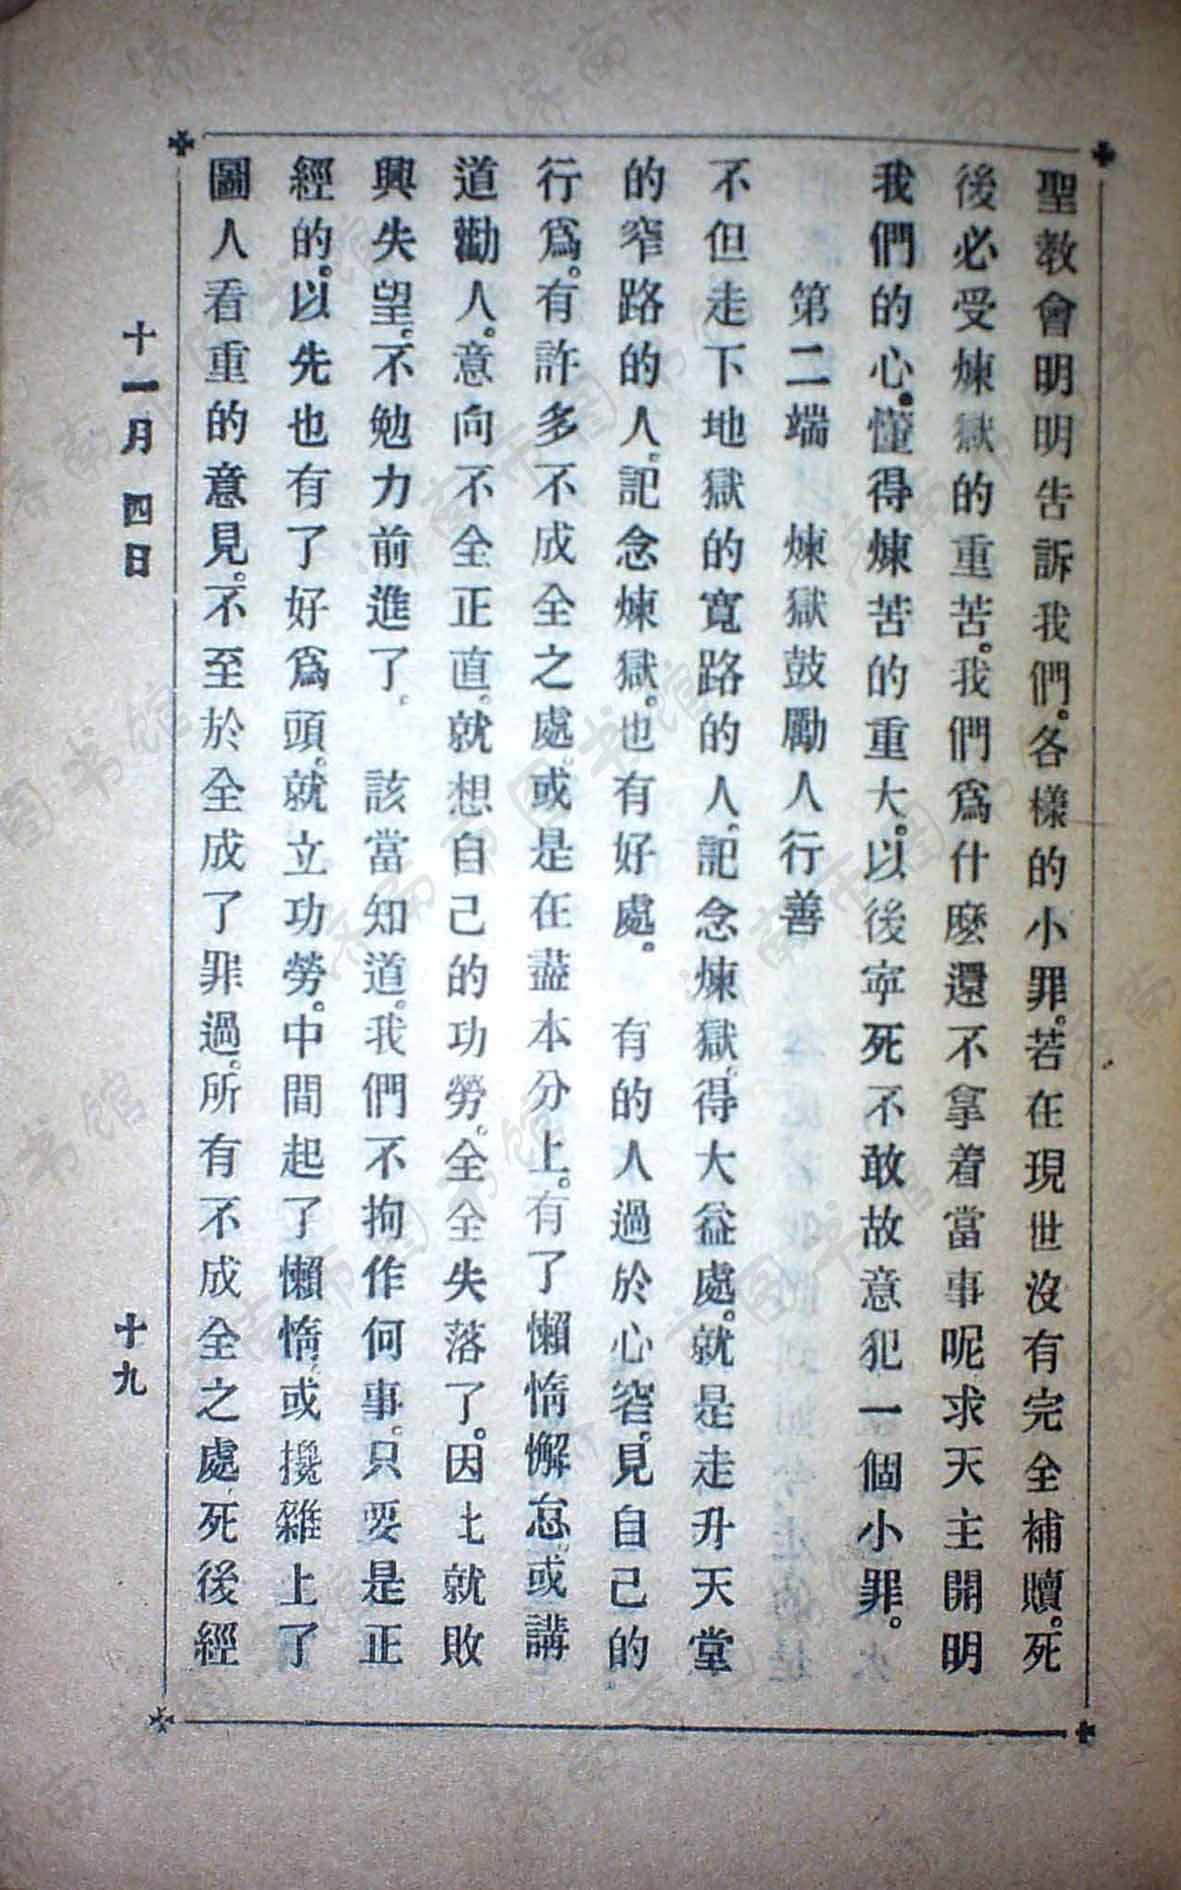 聖教會明明告訴我們。各樣的小罪。若在現世沒有完全補贖。死
後必受煉獄的重苦。我們爲什麼還不拿着當事呢求天主開明
我們的心。懂得煉苦的重大。以後寧死不敢故意犯一個小罪。
第二端 煉獄鼓勵人行善
不但走下地獄的寬路的人。記念煉獄。得大益處。就是走升天堂
的窄路的人。記念煉獄。也有好處。 有的人過於心窄。見自己的
行爲。有許多不成全之處。或是在盡本分上。有了懶惰懈怠。或講
道勸人。意向不全正直。就想自己的功勞。全全失落了。因此就敗
興失望。不勉力前進了。 該當知道。我們不拘作何事。只要是正
經的。以先也有了好爲頭。就立功勞。中間起了懶惰。或攙雜上了
圖人看重的意見。不至於全成了罪過。所有不成全之處死後經
十一月 四日 十九
济南市图书馆